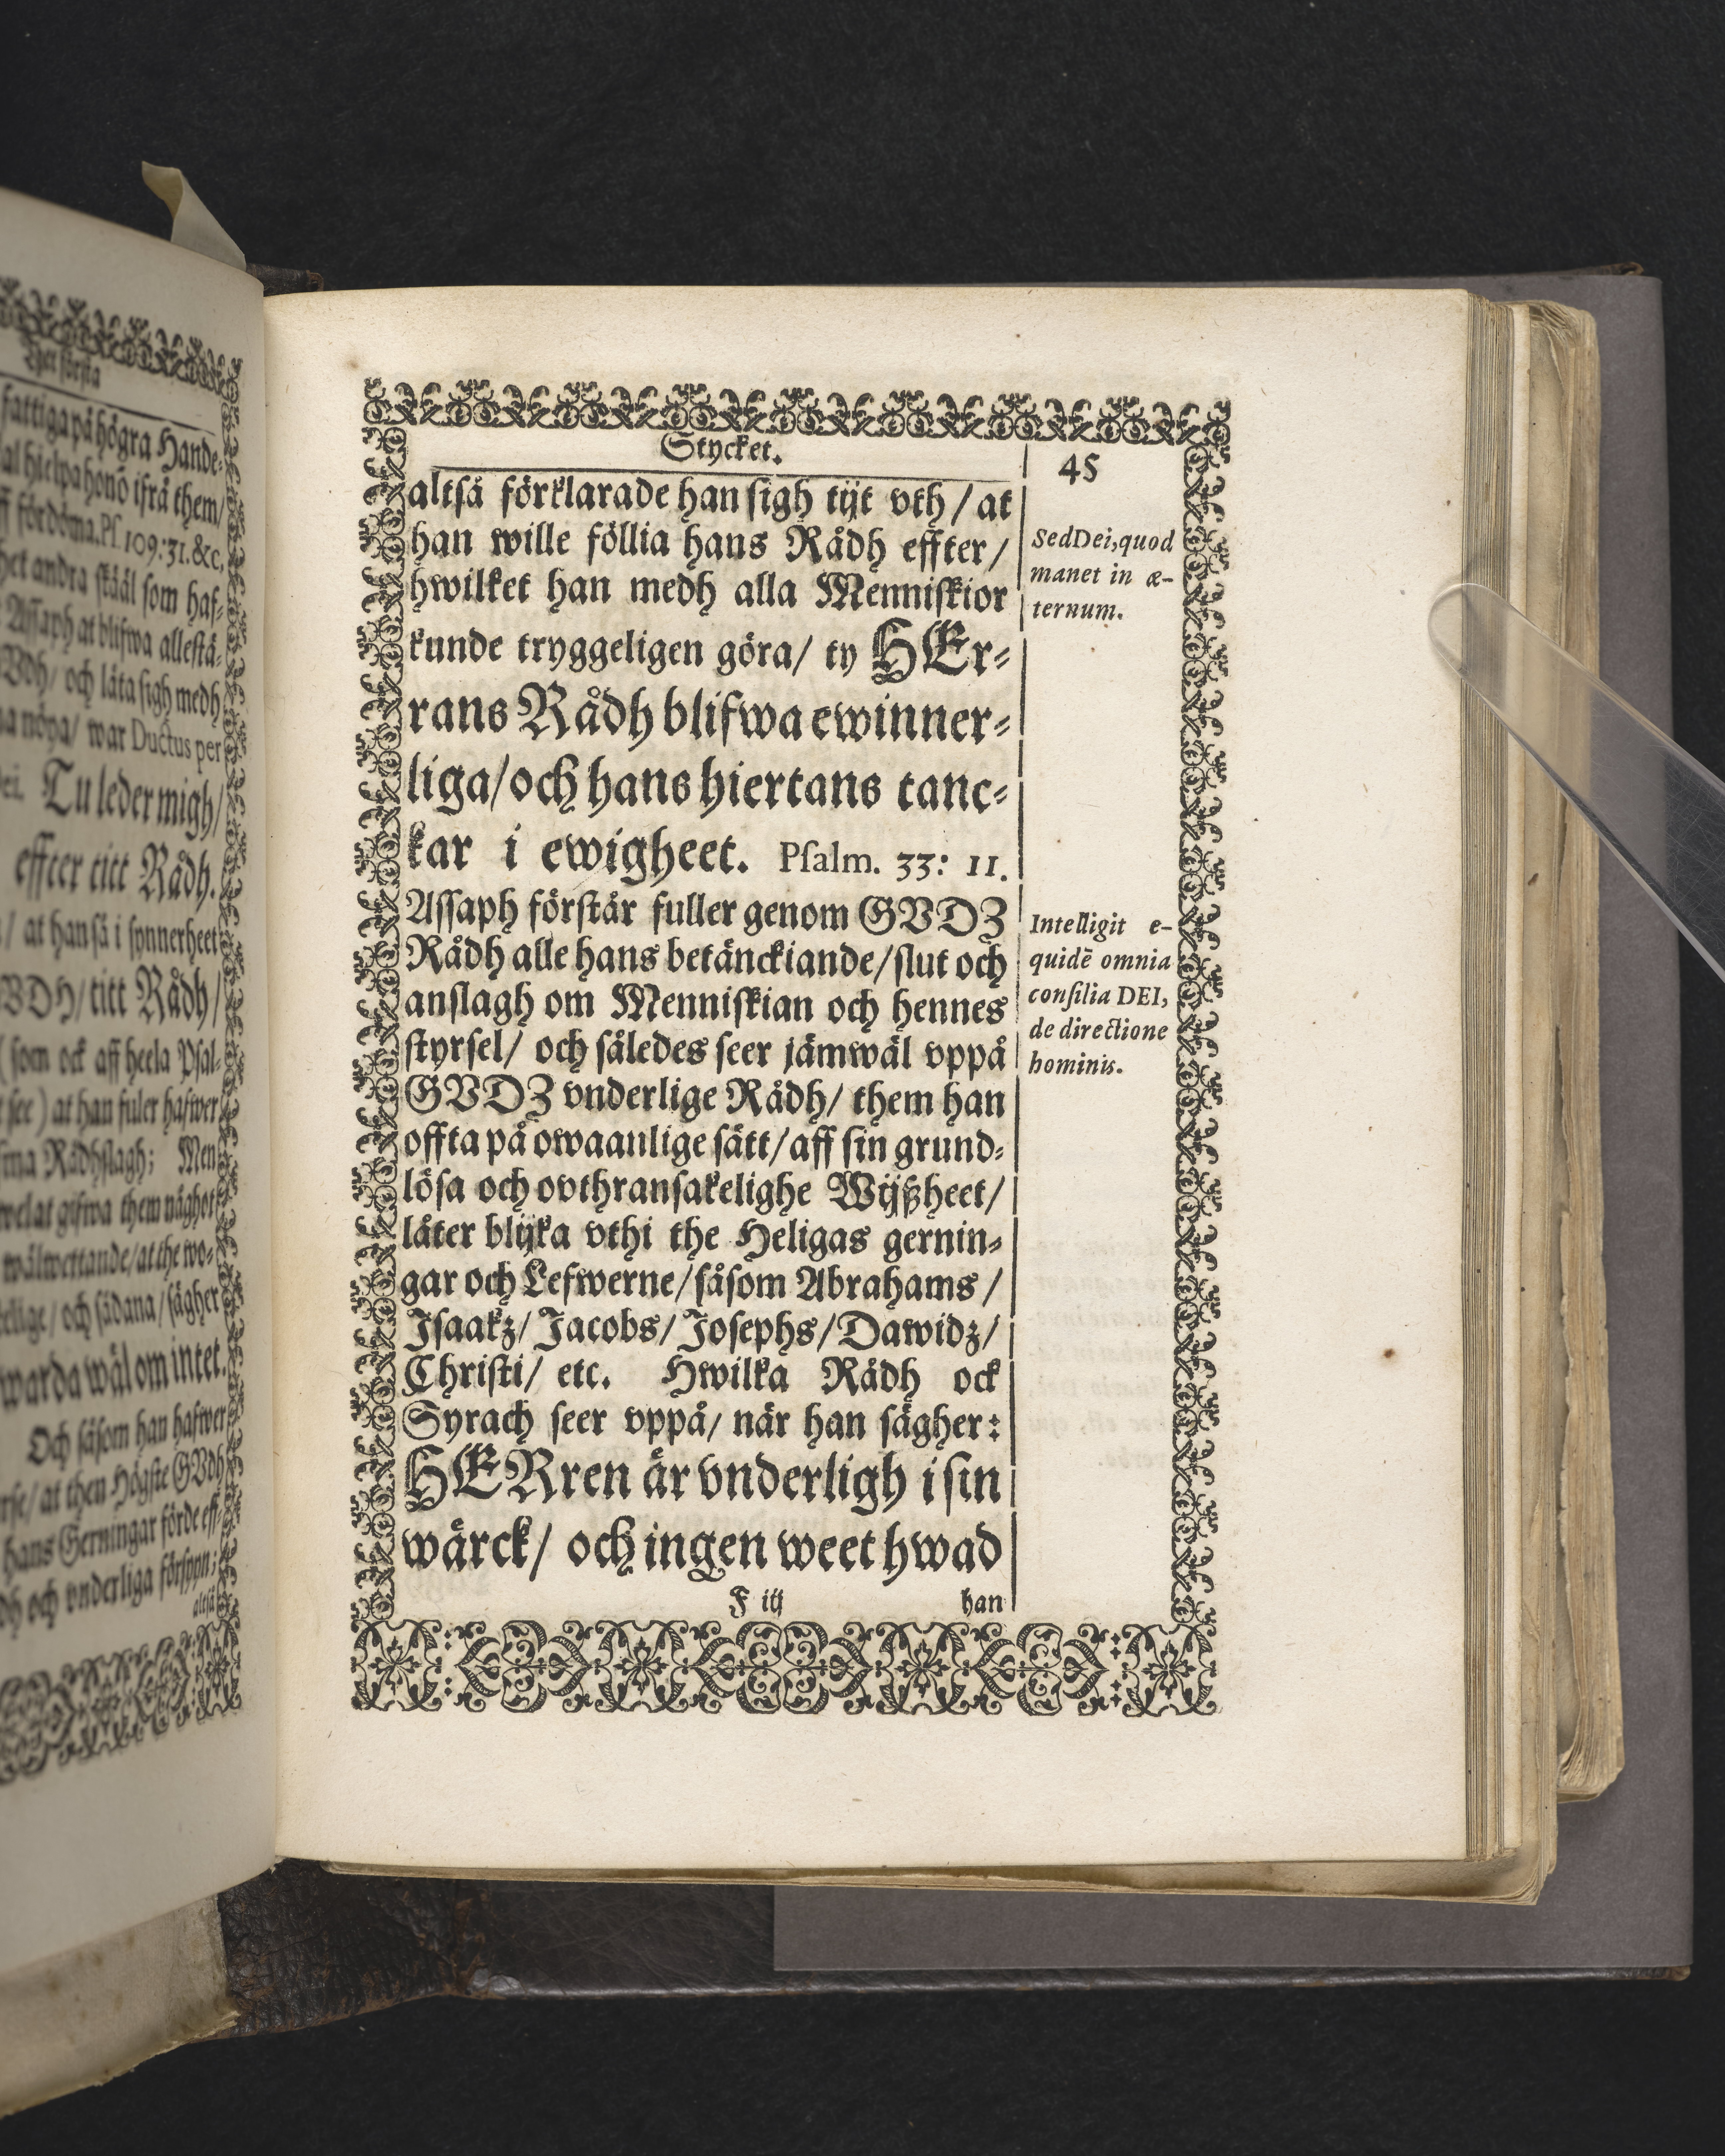 Thet första
fattiga på högra Hande-
al hielpa honō ifrå them/
ff fördöma. Pſ. 109:31. &c.
het andra skääl som haf-
Assaph at blifwa allestä-
VDh/ och låta sigh medh
na nöya/ war Ductus per
Dei. Tu leder migh/
effter titt Rådh.
/ at han så i synnerheet
GVDH/ titt Rådh/
(som ock aff heela Psal-
see) at han fuler hafwer
ma Rådhslagh; Men
welat gifwa them någhot
wälwettande/ at the wo-
elige/ och sådana/ sägher
warda wäl om intet.
Och såsom han hafwer
rse/ at then Högste GVdh
hans Gerningar förde eff-
dh och vnderliga försyn;
altså
Stycket.
45
altså förklarade han sigh tijt vth / at
han wille föllia hans Rådh effter/
hwilket han medh alla Menniſkior
kunde tryggeligen göra/ ty HEr-
rans Rådh blifwa ewinner-
liga/ och hans hiertans tanc-
kar i ewigheet. Pſalm. 33: 11.
Aſſaph förſtår fuller genom GVDZ
Rådh alle hans betänckiande/ ſlut och
anſlagh om Menniſkian och hennes
ſtyrſel/ och ſåledes ſeer jämwäl vppå
GVDZ vnderlige Rådh/ them han
offta på owaanlige ſätt/ aff ſin grund-
löſa och ovthranſakelighe Wijßheet/
låter blijka vthi the Heligas gernin-
gar och Lefwerne/ ſåſom Abrahams /
Iſaakz/ Jacobs/ Joſephs/ Dawidz/
Chriſti/ etc. Hwilka Rådh ock
Syrach ſeer vppå/ när han ſägher:
HERren är vnderligh i ſin
wärck/ och ingen weet hwad
F iij han
Sed Dei, quod
manet in æ-
ternum.
Intelligit e-
quidē omnia
conſilia DEI,
de directione
hominis.